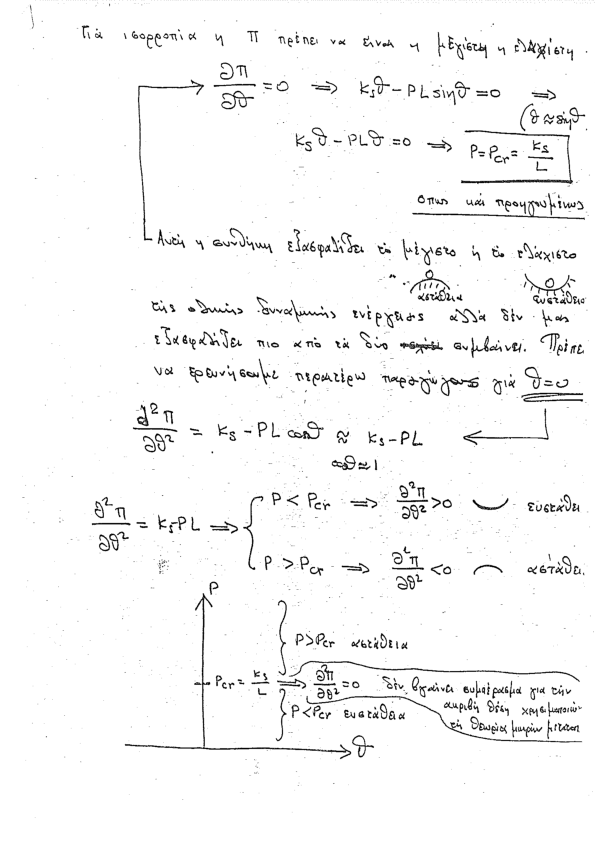 Για ισορροπία η Π πρέπει να είναι η μέγιστη η ελαχίστη.
∂Π/∂θ = 0 ⟹ Ksθ - PL sinθ = 0 ⟹
(θ ≈ sinθ
Ksθ - PLθ = 0 ⟹ P = Pcr = Ks/L
όπως και προηγουμένως
Αυτή η συνθήκη εξασφαλίζει το μέγιστο ή το ελάχιστο
αστάθεια ευστάθεια
της ολικής δυναμικής ενέργειας αλλά δέν μας
εξασφαλίζει πιο από τα δύο συμβαίνει. Πρέπει
να ερευνήσουμε περαιτέρω παραγώγους γιά θ=0
∂²Π/∂θ² = Ks - PL cosθ ≈ Ks - PL
cosθ≈1
∂²Π/∂θ² = Ks-PL ⟹ { P < Pcr ⟹ ∂²Π/∂θ² > 0 ευσταθεί
P > Pcr ⟹ ∂²Π/∂θ² < 0 ασταθεί.
P
P>Pcr αστάθεια
Pcr = Ks/L ⟹ ∂²Π/∂θ² = 0 δέν βγαίνει συμπέρασμα για την
ακριβή θέση χρησιμοποιών-
P<Pcr ευστάθεια
τη θεωρία μικρών μετατοπ
θ